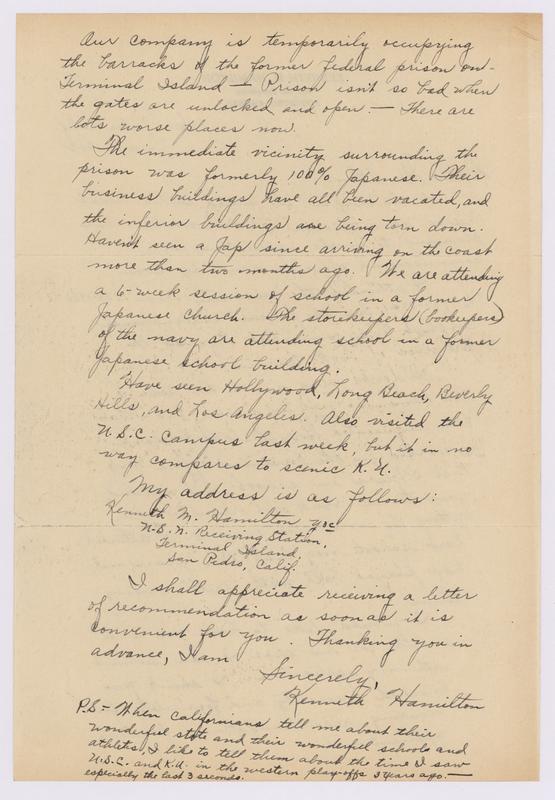 Our company is temporarily occupying
the barracks of the former federal prison on
Terminal Island — Prison isn't so bad when
the gates are unlocked and open. — There are
lots worse places now.
The immediate vicinity surrounding the
prison was formerly 100% Japanese. Their
business buildings have all been vacated, and
the inferior buildings are being torn down.
Haven't seen a Jap since arriving on the coast
more than two months ago. We are attending
a 6-week session of school in a former
Japanese church. The storekeepers (bookeepers)
of the navy are attending school in a former
Japanese school building.
Have seen Hollywood, Long Beach, Beverly
Hills, and Los Angeles. Also visited the
U.S.C. campus last week, but it in no
way compares to scenic K.U.
My address is as follows:
Kenneth M. Hamilton y3c
U.S.N. Receiving Station,
Terminal Island,
San Pedro, Calif.
I shall appreciate receiving a letter
of recommendation as soon as it is
convenient for you. Thanking you in
advance, I am
Sincerely,
Kenneth Hamilton
P.S — When Californians tell me about their
wonderful state and their wonderful schools and
athlets, I like to tell them about the time I saw
U.S.C. and K.U. in the western play-offs 3 years ago. —
especially the last 3 seconds.